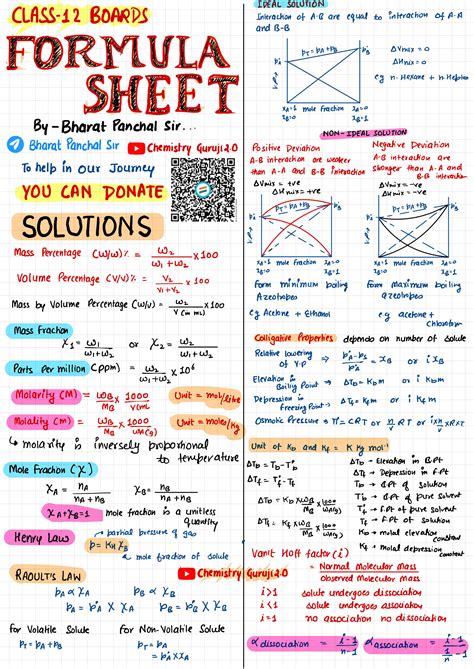 CLASS-12 BOARDS
FORMULA
SHEET
By - Bharat Panchal Sir...
Bharat Panchal Sir
Chemistry Guruji 2.0
To help in our Journey
YOU CAN DONATE
SOLUTIONS
Mass Percentage (w/w)% = w₂ / (w₁ + w₂) x 100
Volume Percentage (V/V)% = V₂ / (V₁ + V₂) x 100
Mass by Volume Percentage (w/v) = w₂ / V (in mL) x 100
Mass Fraction
χ₁ = w₁ / (w₁ + w₂) or χ₂ = w₂ / (w₁ + w₂)
Parts per million (ppm) = w₂ / (w₁ + w₂) x 10⁶
Molarity (M) = w_B / M_B x 1000 / V mL
Unit = mol/litre
Molality (m) = w_B / M_B x 1000 / w_A (g)
Unit = moles/kg
molarity is inversely proportional
to temperature
Mole Fraction (χ)
χ_A = n_A / (n_A + n_B) χ_B = n_B / (n_A + n_B)
χ_A + χ_B = 1 mole fraction is a unitless
quantity
Henry Law
partial pressure of gas
p = K_H χ_B
mole fraction of solute
RAOULT'S LAW
Chemistry Guruji 2.0
p_A ∝ χ_A p_B ∝ χ_B
p_A = p°_A X χ_A p_B = p°_B X χ_B
for Volatile Solute for Non-Volatile Solute
P_T = P_A + P_B P_T = P_A
= p°_A x χ_A
IDEAL SOLUTION
Interaction of A-B are equal to interaction of A-A
and B-B
P_T = P_A + P_B
p°_A
p°_B
ΔVmix = 0
ΔHmix = 0
e.g n-Hexane + n-Heptan
mole fraction
NON-IDEAL SOLUTION
Positive Deviation
A-B interaction are weaker
than A-A and B-B interaction
ΔVmix = +ve
ΔHmix = +ve
Negative Deviation
A-B interaction are
stronger than A-A and
B-B interaction
ΔVmix = -ve
ΔHmix = -ve
P_T = P_A + P_B
P_T = P_A + P_B
mole fraction
mole fraction
form minimum boiling
Azeotropes
e.g Acetone + Ethanol
form maximum boiling
azeotropes
e.g acetone +
Chloroform
Colligative Properties depends on number of solute
Relative lowering
of V.P → (p°_A - p_s) / p°_A = χ_B or i χ_B
Elevation in
Boiling Point → ΔT_b = K_b m or i K_b m
Depression in
Freezing Point → ΔT_f = K_f m or i K_f m
Osmotic Pressure → π = CRT or n/V RT or i x n/V x RxT
Unit of K_b and K_f = K Kg mol⁻¹
ΔT_b = T_b - T°_b
ΔT_f = T°_f - T_f
ΔT_b = K_b x w_B / M_B x 1000 / w_A (g)
ΔT_f = K_f x w_B / M_B x 1000 / w_A (g)
ΔT_b → Elevation in B.Pt
ΔT_f → Depression in F.Pt
T_b → B.Pt of Solution
T°_b → B.Pt of pure solvent
T°_f → F.Pt of pure solvent
T_f → F.Pt of solution
K_b → molal elevation
constant
K_f → molal depression
constant
Vanit Hoff factor (i)
= Normal Molecular Mass / Observed Molecular Mass
i > 1 solute undergoes dissociation
i < 1 solute undergoes association
i = 1 no association no dissociation
α dissociation = (i - 1) / (n - 1)
α association = (i - 1) / (1/n - 1)